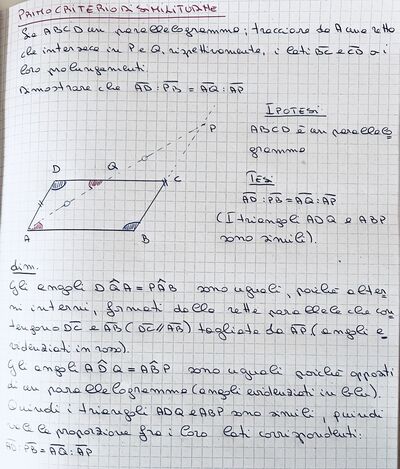 PRIMO CRITERIO DI SIMILITUDINE
Sia ABCD un parallelogramma; tracciare da A una retta
che interseca in P e Q, rispettivamente, i lati BC e CD o i
loro prolungamenti.
Dimostrare che AD : PB = AQ : AP
IPOTESI
ABCD è un parallelo
gramma
TESI
AD : PB = AQ : AP
(I triangoli ADQ e ABP
sono simili).
P
D
Q
C
A
B
dim.
Gli angoli DQ̂A = PÂB sono uguali, poiché alter
ni interni, formati dalle rette parallele che con
tengono DC e AB (DC // AB) tagliate da AP (angoli e
videnziati in rosso).
Gli angoli AD̂Q = AB̂P sono uguali poiché opposti
di un parallelogramma (angoli evidenziati in blu).
Quindi i triangoli ADQ e ABP sono simili, quindi
vale la proporzione fra i loro lati corrispondenti:
AD : PB = AQ : AP